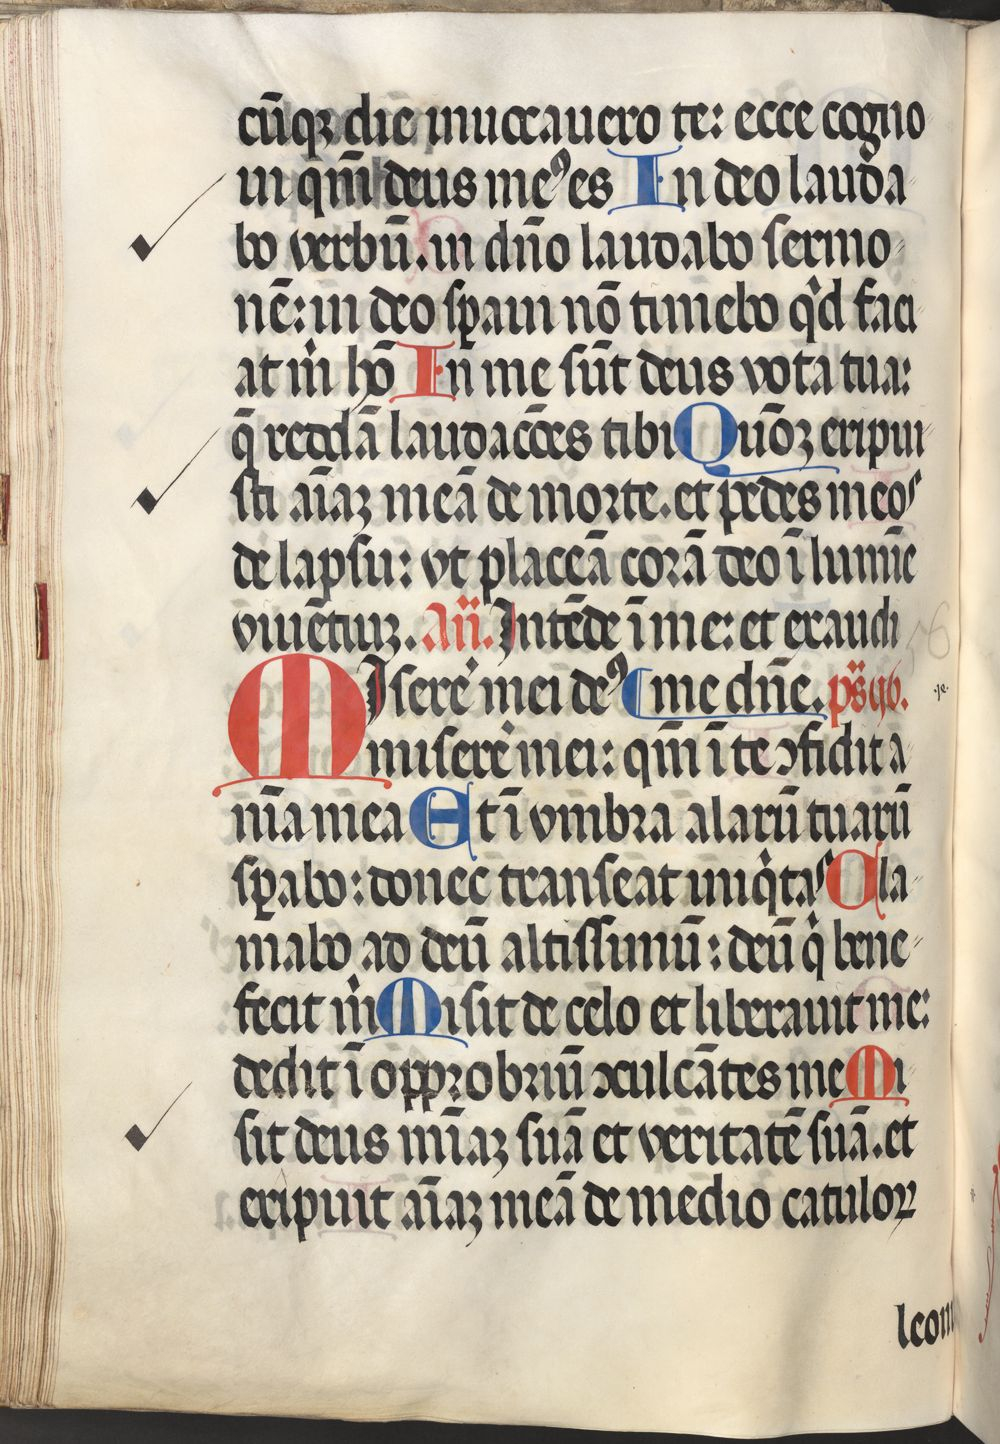 cūqꝫ diē inuocauero te: ecce cogno
ui qm̄ deus meꝰ es In deo lauda
bo verbū. in dn̄o laudabo sermo
nē: in deo sꝑaui nō timebo qͥd faci
at m̄i hō In me sūt deus vota tua:
q̄ reddā laudacōēs tibi Quōꝫ eripui
sti aīaꝫ meā de morte. et pedes meos
de lapsu: vt placeā corā deo ī lumīe
viuētiuꝫ. Añ. Intēde ī me: et exaudi
MIsereʼ mei deꝰ me dn̄e. ps̄ qb.
misereʼ mei: qm̄ ī te ↄfidit a
nīa mea Et ī vmbra alarū tuarū
sꝑabo: donec transeat iniqͥtas Cla
mabo ad deū altissimū: deū qͥ bene
fecit m̄i Misit de celo et liberauit me:
dedit ī opprobriū ↄculcātes me Mi
sit deus mīaꝫ suā et veritatē suā. et
eripuit aīaꝫ meā de medio catuloꝝ
leoni